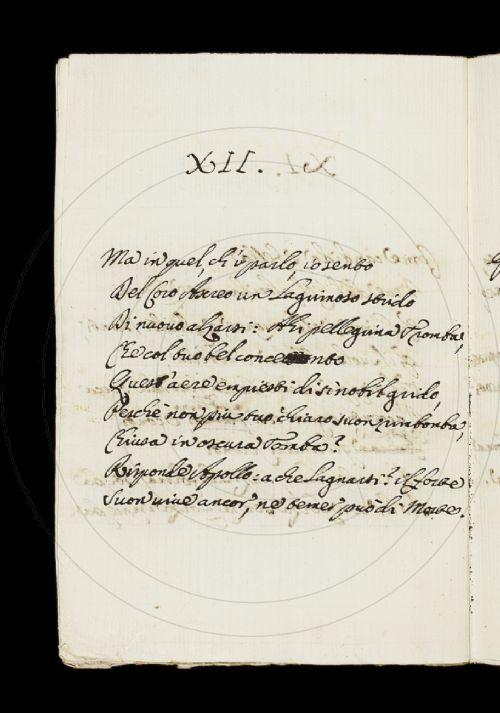 XII.
Ma in quel, ch' io parlo, io sento
Del Coro Ascreo un Lagrimoso strido
Di nuovo alzarsi: Ahi pellegrina Tromba,
Che col tuo bel concento
Quest' aere empiesti di sì nobil grido,
Perchè non più tuo chiaro suon rimbomba,
Chiusa in oscura Tomba?
Risponde Apollo: a che lagnarti? il forte
Suon vive ancor, nè temer può di Morte.